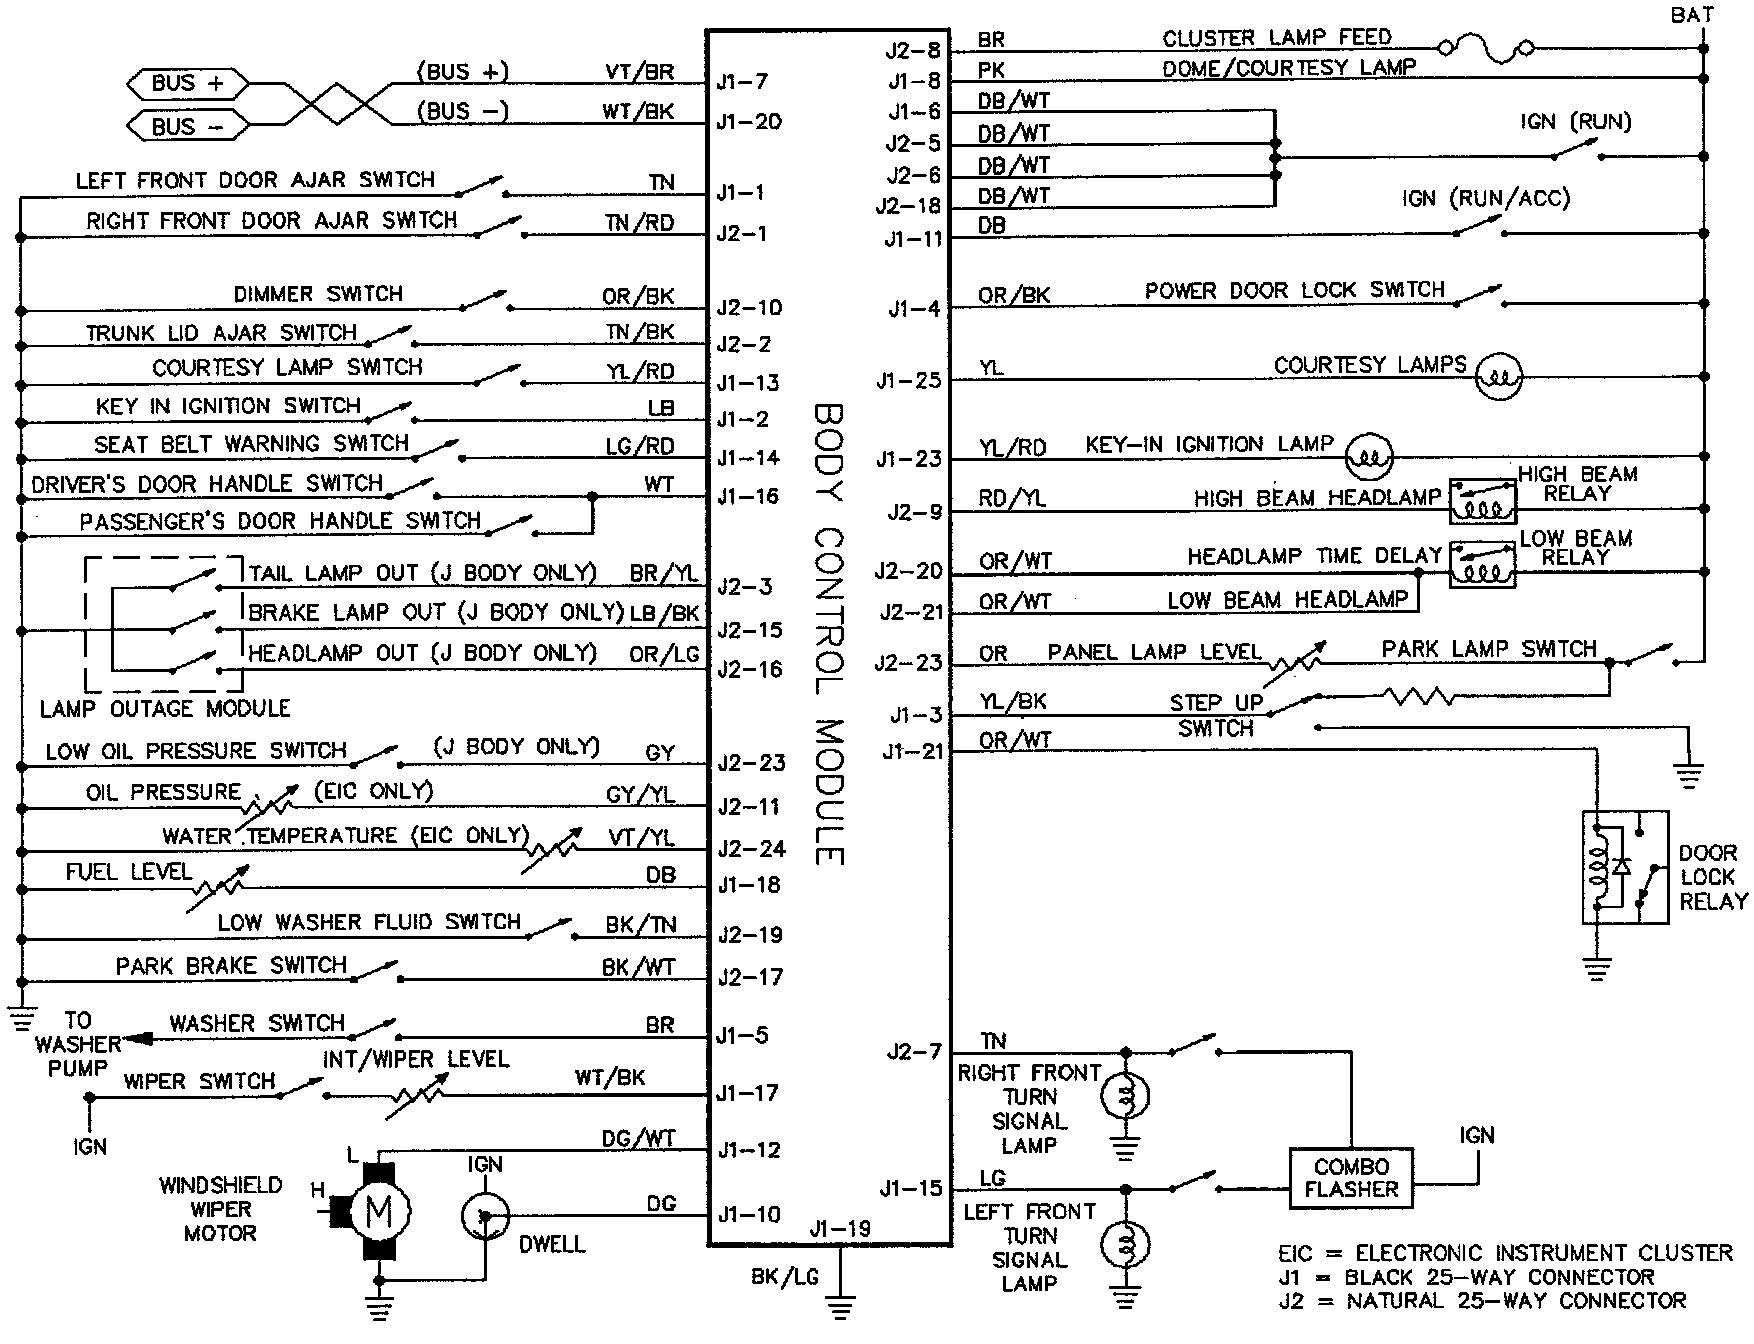 BAT
BR CLUSTER LAMP FEED
J2-8
PK DOME/COURTESY LAMP
J1-8
BUS + (BUS +) VT/BR J1-7
BUS - (BUS -) WT/BK J1-20
DB/WT J1-6
DB/WT J2-5
DB/WT J2-6
DB/WT J2-18
IGN (RUN)
DB J1-11
IGN (RUN/ACC)
LEFT FRONT DOOR AJAR SWITCH TN J1-1
RIGHT FRONT DOOR AJAR SWITCH TN/RD J2-1
DIMMER SWITCH OR/BK J2-10
TRUNK LID AJAR SWITCH TN/BK J2-2
COURTESY LAMP SWITCH YL/RD J1-13
KEY IN IGNITION SWITCH LB J1-2
SEAT BELT WARNING SWITCH LG/RD J1-14
DRIVER'S DOOR HANDLE SWITCH WT J1-16
PASSENGER'S DOOR HANDLE SWITCH
TAIL LAMP OUT (J BODY ONLY) BR/YL J2-3
BRAKE LAMP OUT (J BODY ONLY) LB/BK J2-15
HEADLAMP OUT (J BODY ONLY) OR/LG J2-16
LAMP OUTAGE MODULE
LOW OIL PRESSURE SWITCH (J BODY ONLY) GY J2-23
OIL PRESSURE (EIC ONLY) GY/YL J2-11
WATER TEMPERATURE (EIC ONLY) VT/YL J2-24
FUEL LEVEL DB J1-18
LOW WASHER FLUID SWITCH BK/TN J2-19
PARK BRAKE SWITCH BK/WT J2-17
TO
WASHER
PUMP
WASHER SWITCH BR J1-5
INT/WIPER LEVEL
WIPER SWITCH WT/BK J1-17
IGN
DG/WT J1-12
L
H
M
WINDSHIELD
WIPER
MOTOR
IGN
DWELL
DG J1-10
BODY CONTROL MODULE
J1-19
BK/LG
J1-4 OR/BK POWER DOOR LOCK SWITCH
J1-25 YL COURTESY LAMPS
J1-23 YL/RD KEY-IN IGNITION LAMP
J2-9 RD/YL HIGH BEAM HEADLAMP
HIGH BEAM
RELAY
J2-20 OR/WT HEADLAMP TIME DELAY
LOW BEAM
RELAY
J2-21 OR/WT LOW BEAM HEADLAMP
J2-23 OR PANEL LAMP LEVEL PARK LAMP SWITCH
J1-3 YL/BK STEP UP
SWITCH
J1-21 OR/WT
DOOR
LOCK
RELAY
J2-7 TN
RIGHT FRONT
TURN
SIGNAL
LAMP
J1-15 LG
LEFT FRONT
TURN
SIGNAL
LAMP
COMBO
FLASHER
IGN
EIC = ELECTRONIC INSTRUMENT CLUSTER
J1 = BLACK 25-WAY CONNECTOR
J2 = NATURAL 25-WAY CONNECTOR